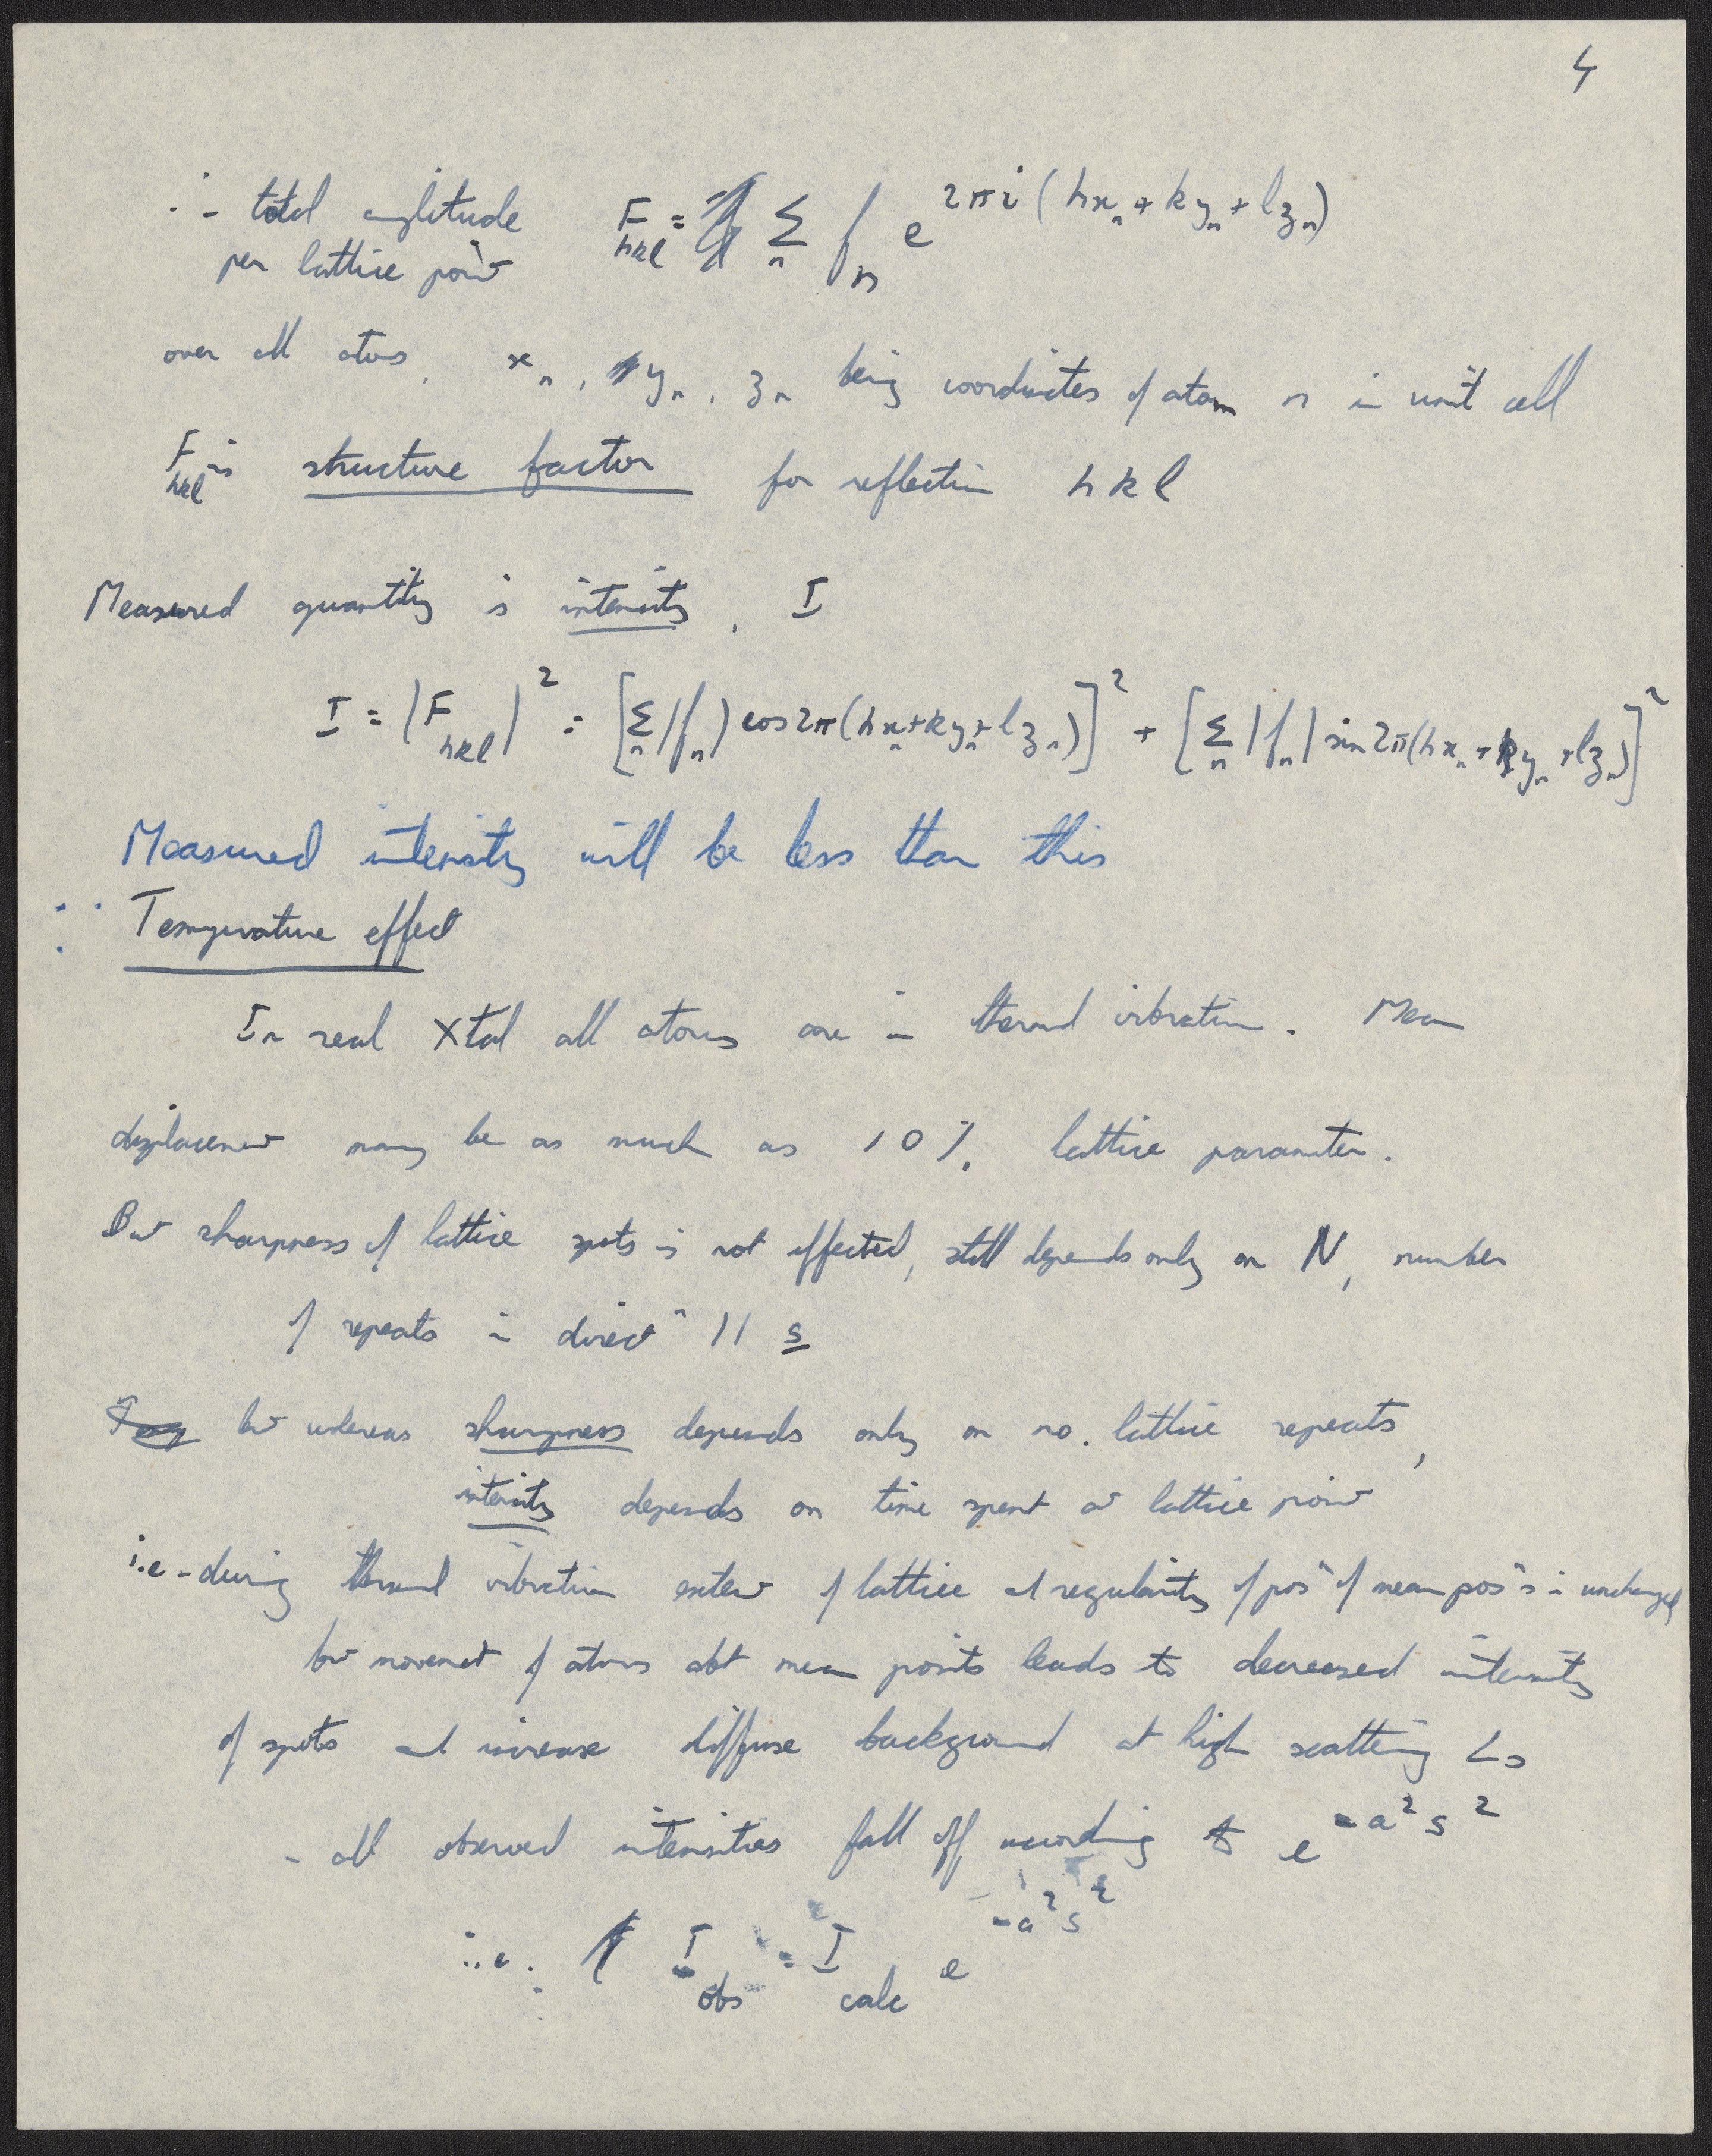 4
∴ total amplitude F_hkl = Σ_n f_n e^{2πi(hx_n + ky_n + lz_n)}
per lattice point
over all atoms, x_n, y_n, z_n being coordinates of atom n in unit cell
F_hkl is structure factor for reflection hkl
Measured quantity is intensity, I
I = |F_hkl|² = [Σ_n |f_n| cos2π(hx_n + ky_n + lz_n)]² + [Σ_n |f_n| sin2π(hx_n + ky_n + lz_n)]²
Measured intensity will be less than this
∵ Temperature effect
In real Xtal all atoms are in thermal vibration. Mean
displacement may be as much as 10% lattice parameter.
But sharpness of lattice spots is not effected, still depends only on N, number
of repeats in directⁿ // s
but whereas sharpness depends only on no. lattice repeats,
intensity depends on time spent at lattice point
i.e. - during thermal vibration extent of lattice and regularity of posⁿ of mean posⁿs is unchanged
but movement of atoms abt mean points leads to decreased intensity
of spots and increase diffuse background at high scattering ∠s
- all observed intensities fall off according to e^{-a²s²}
i.e. I_obs = I_calc e^{-a²s²}